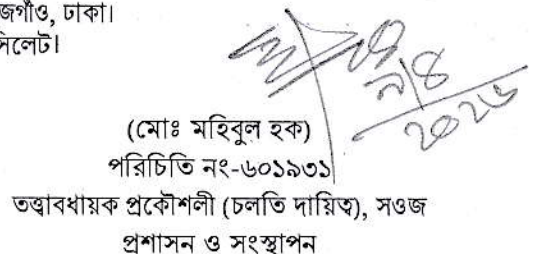 জগাঁও, ঢাকা।
সিলেট।
২০২৬
(মোঃ মহিবুল হক)
পরিচিতি নং-৬০১৯৩১
তত্ত্বাবধায়ক প্রকৌশলী (চলতি দায়িত্ব), সওজ
প্রশাসন ও সংস্থাপন